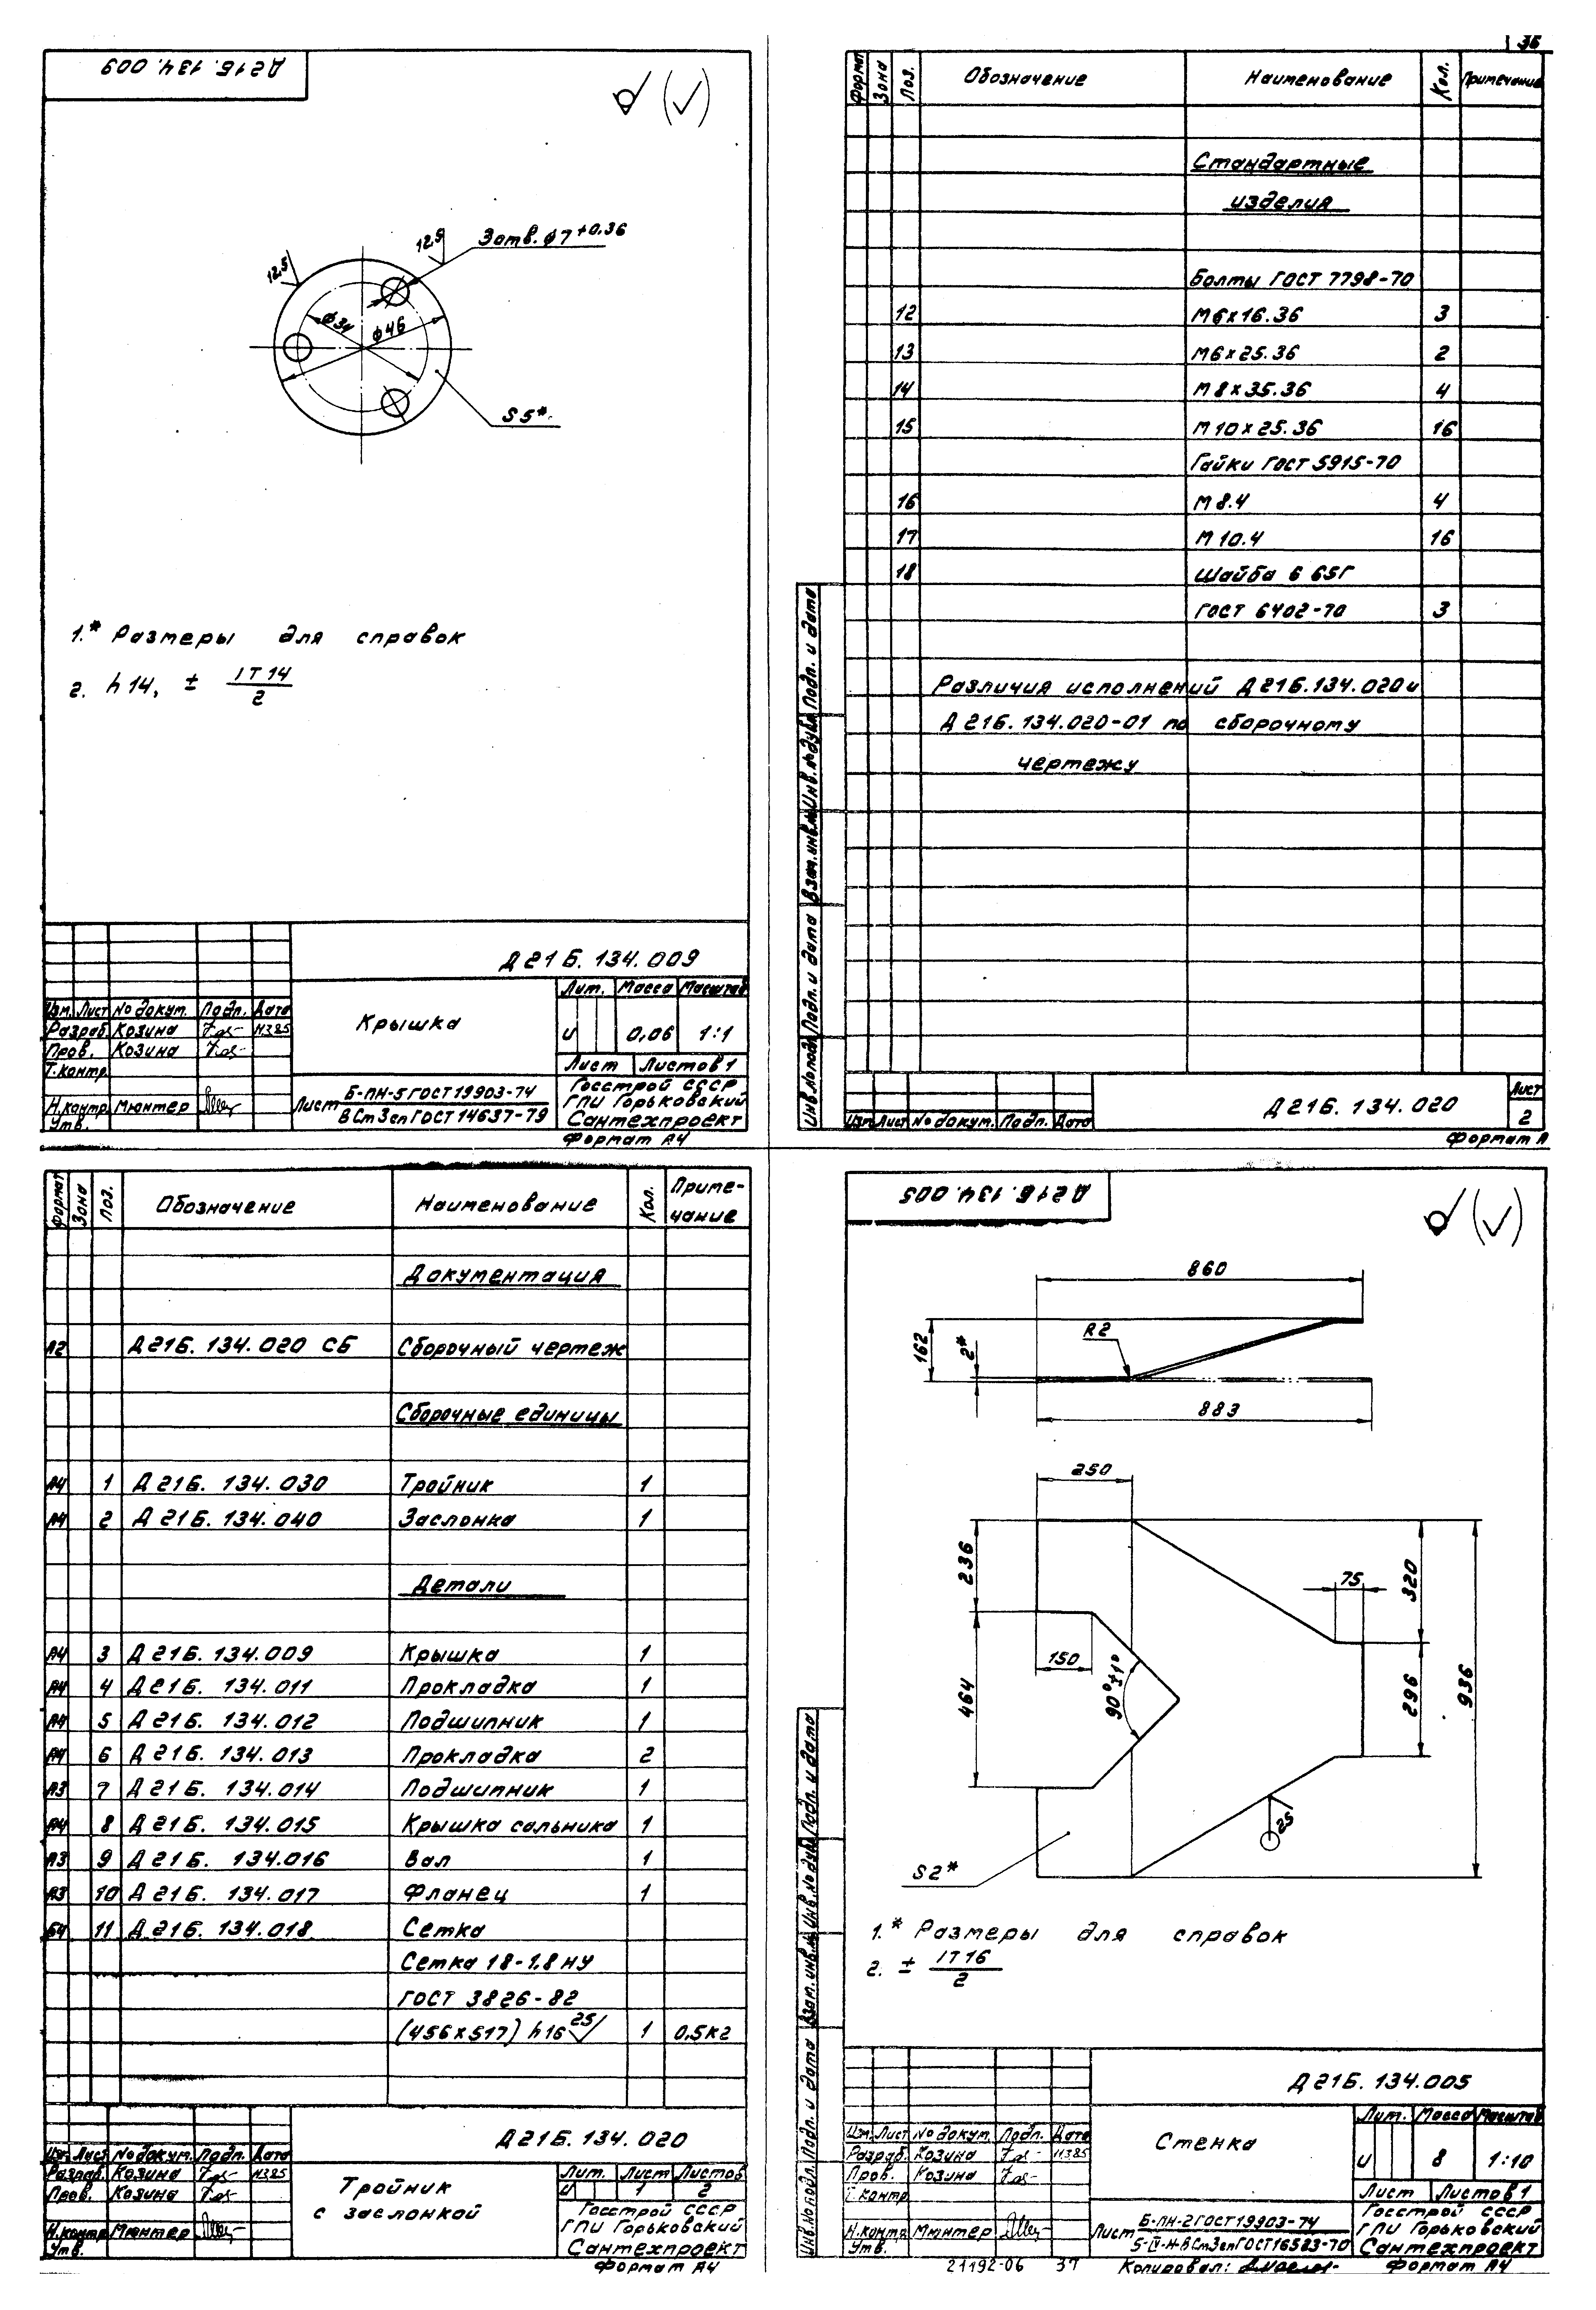 Д21Б. 134. 009
12,5
12,5
3 отв. ф7+0.36
ф34
ф46
S5*
1.* Размеры для справок
2. h14, ± IT14/2
Д21Б. 134. 009
Изм. Лист № докум. Подп. Дата
Разраб. Козина 11.385
Пров. Козина
Т.контр.
Н.контр. Мюнтер
Утв.
Крышка
Лит. Масса Масштаб
И 0,06 1:1
Лист Листов 1
Лист Б-ПН-5 ГОСТ 19903-74
ВСт3сп ГОСТ 14637-79
Госстрой СССР
ГПИ Горьковский
Сантехпроект
Формат А4
36
Формат Зона Поз. Обозначение Наименование Кол. Примечание
Стандартные
изделия
Болты ГОСТ 7798-70
12 М6х16.36 3
13 М6х25.36 2
14 М8х35.36 4
15 М10х25.36 16
Гайки ГОСТ 5915-70
16 М8.4 4
17 М10.4 16
18 Шайба 6 65Г
ГОСТ 6402-70 3
Различия исполнений Д21Б.134.020 и
Д21Б.134.020-01 по сборочному
чертежу
Инв.№ подл. Подп. и дата Взам.инв.№ Инв.№ дубл. Подп. и дата
Изм. Лист № докум. Подп. Дата
Д21Б. 134. 020
Лист
2
Формат А
Формат Зона Поз. Обозначение Наименование Кол. Приме-
чание
Документация
А2 Д21Б. 134. 020 СБ Сборочный чертеж
Сборочные единицы
А4 1 Д21Б. 134. 030 Тройник 1
А4 2 Д21Б. 134. 040 Заслонка 1
Детали
А4 3 Д21Б. 134. 009 Крышка 1
А4 4 Д21Б. 134. 011 Прокладка 1
А4 5 Д21Б. 134. 012 Подшипник 1
А4 6 Д21Б. 134. 013 Прокладка 2
А3 7 Д21Б. 134. 014 Подшипник 1
А4 8 Д21Б. 134. 015 Крышка сальника 1
А3 9 Д21Б. 134.016 Вал 1
А3 10 Д21Б. 134. 017 Фланец 1
Б4 11 Д21Б. 134.018 Сетка
Сетка 18-1,8 НУ
ГОСТ 3826-82
(456х517) h16 25 1 0,5кг
Изм. Лист № докум. Подп. Дата
Разраб. Козина 11.385
Пров. Козина
Н.контр. Мюнтер
Утв.
Д21Б. 134. 020
Тройник
с заслонкой
Лит. Лист Листов
И 1 2
Госстрой СССР
ГПИ Горьковский
Сантехпроект
Формат А4
Д21Б. 134. 005
860
162
2*
R2
883
250
236
464
150
90°±1°
75
320
296
936
25
S2*
1.* Размеры для справок
2. ± IT16/2
Инв.№ подл. Подп. и дата Взам.инв.№ Инв.№ дубл. Подп. и дата
Д21Б. 134.005
Изм. Лист № докум. Подп. Дата
Разраб. Козина 11.385
Пров. Козина
Т.контр.
Н.контр. Мюнтер
Утв.
Стенка
Лит. Масса Масштаб
И 8 1:10
Лист Листов 1
Лист Б-ПН-2 ГОСТ 19903-74
5-IV-Н-ВСт3сп ГОСТ 16523-70
Госстрой СССР
ГПИ Горьковский
Сантехпроект
21192-06 37
Копировал:
Формат А4